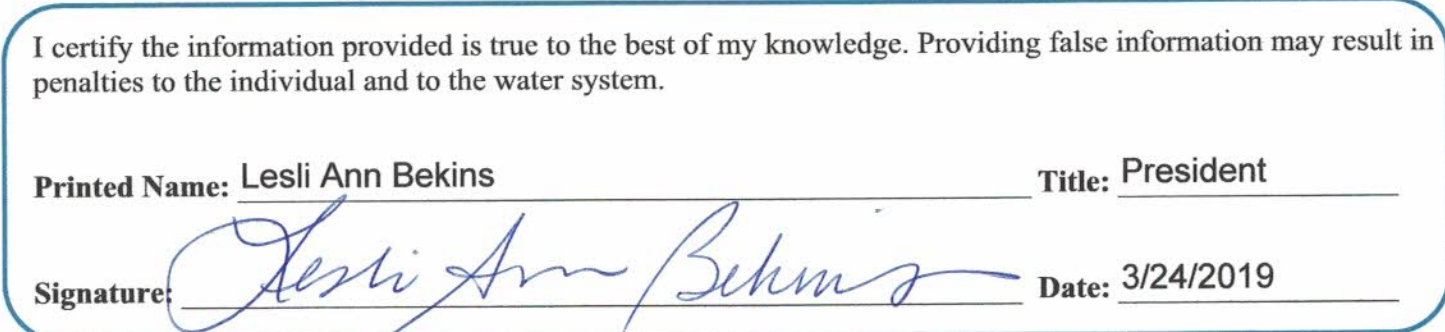 I certify the information provided is true to the best of my knowledge. Providing false information may result in
penalties to the individual and to the water system.
Printed Name: Lesli Ann Bekins Title: President
Signature: Lesli Ann Bekins Date: 3/24/2019